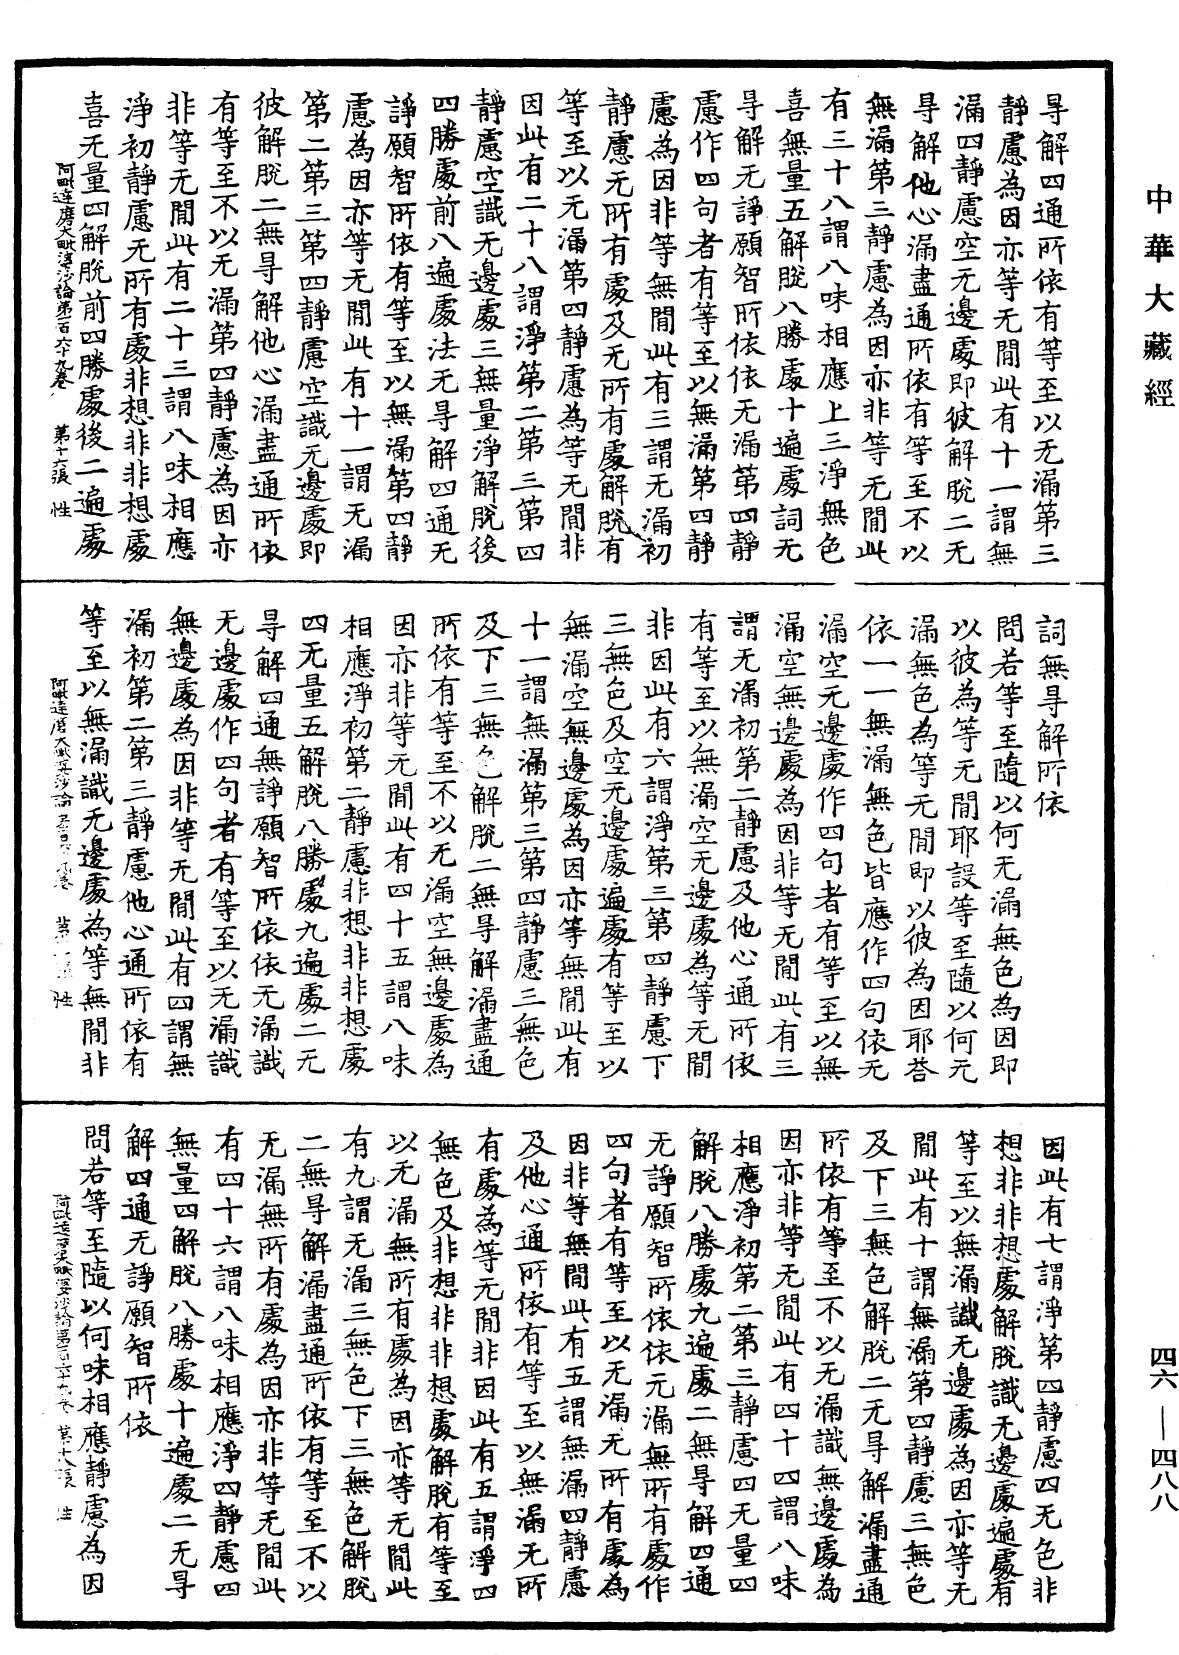 中華大藏經
㝵解四通所依有等至以无漏第三
靜慮為因亦等无間此有十一謂無
漏四靜慮空无邊處即彼解脫二无
㝵解他心漏盡通所依有等至不以
無漏第三靜慮為因亦非等无間此
有三十八謂八味相應上三淨無色
喜無量五解脫八勝處十遍處詞无
㝵解无諍願智所依依无漏第四靜
慮作四句者有等至以無漏第四靜
慮為因非等無間此有三謂无漏初
靜慮无所有處及无所有處解脫有
等至以无漏第四靜慮為等无間非
因此有二十八謂淨第二第三第四
靜慮空識无邊處三無量淨解脫後
四勝處前八遍處法无㝵解四通无
諍願智所依有等至以無漏第四靜
慮為因亦等无間此有十一謂无漏
第二第三第四靜慮空識无邊處即
彼解脫二無㝵解他心漏盡通所依
有等至不以无漏第四靜慮為因亦
非等无間此有二十三謂八味相應
淨初靜慮无所有處非想非非想處
喜无量四解脫前四勝處後二遍處
阿毗達磨大毗婆沙論第一百六十九卷 第十六張 性
詞無㝵解所依
問若等至隨以何无漏無色為因即
以彼為等无間耶設等至隨以何无
漏無色為等无間即以彼為因耶荅
依一一無漏無色皆應作四句依无
漏空无邊處作四句者有等至以無
漏空無邊處為因非等无間此有三
謂无漏初第二靜慮及他心通所依
有等至以無漏空无邊處為等无間
非因此有六謂淨第三第四靜慮下
三無色及空无邊處遍處有等至以
無漏空無邊處為因亦等無間此有
十一謂無漏第三第四靜慮三無色
及下三無色解脫二無㝵解漏盡通
所依有等至不以无漏空無邊處為
因亦非等无間此有四十五謂八味
相應淨初第二靜慮非想非非想處
四无量五解脫八勝處九遍處二无
㝵解四通無諍願智所依依无漏識
无邊處作四句者有等至以无漏識
無邊處為因非等无間此有四謂無
漏初第二第三靜慮他心通所依有
等至以無漏識无邊處為等無間非
因此有七謂淨第四靜慮四无色非
想非非想處解脫識无邊處遍處有
等至以無漏識无邊處為因亦等无
間此有十謂無漏第四靜慮三無色
及下三無色解脫二无㝵解漏盡通
所依有等至不以无漏識無邊處為
因亦非等无間此有四十四謂八味
相應淨初第二第三靜慮四无量四
解脫八勝處九遍處二無㝵解四通
无諍願智所依依元漏無所有處作
四句者有等至以无漏无所有處為
因非等無間此有五謂無漏四靜慮
及他心通所依有等至以無漏无所
有處為等无間非因此有五謂淨四
無色及非想非非想處解脫有等至
以无漏無所有處為因亦等无間此
有九謂无漏三無色下三無色解脫
二無㝵解漏盡通所依有等至不以
无漏無所有處為因亦非等无間此
有四十六謂八味相應淨四靜慮四
無量四解脫八勝處十遍處二无㝵
解四通无諍願智所依
問若等至隨以何味相應靜慮為因
四六—四八八